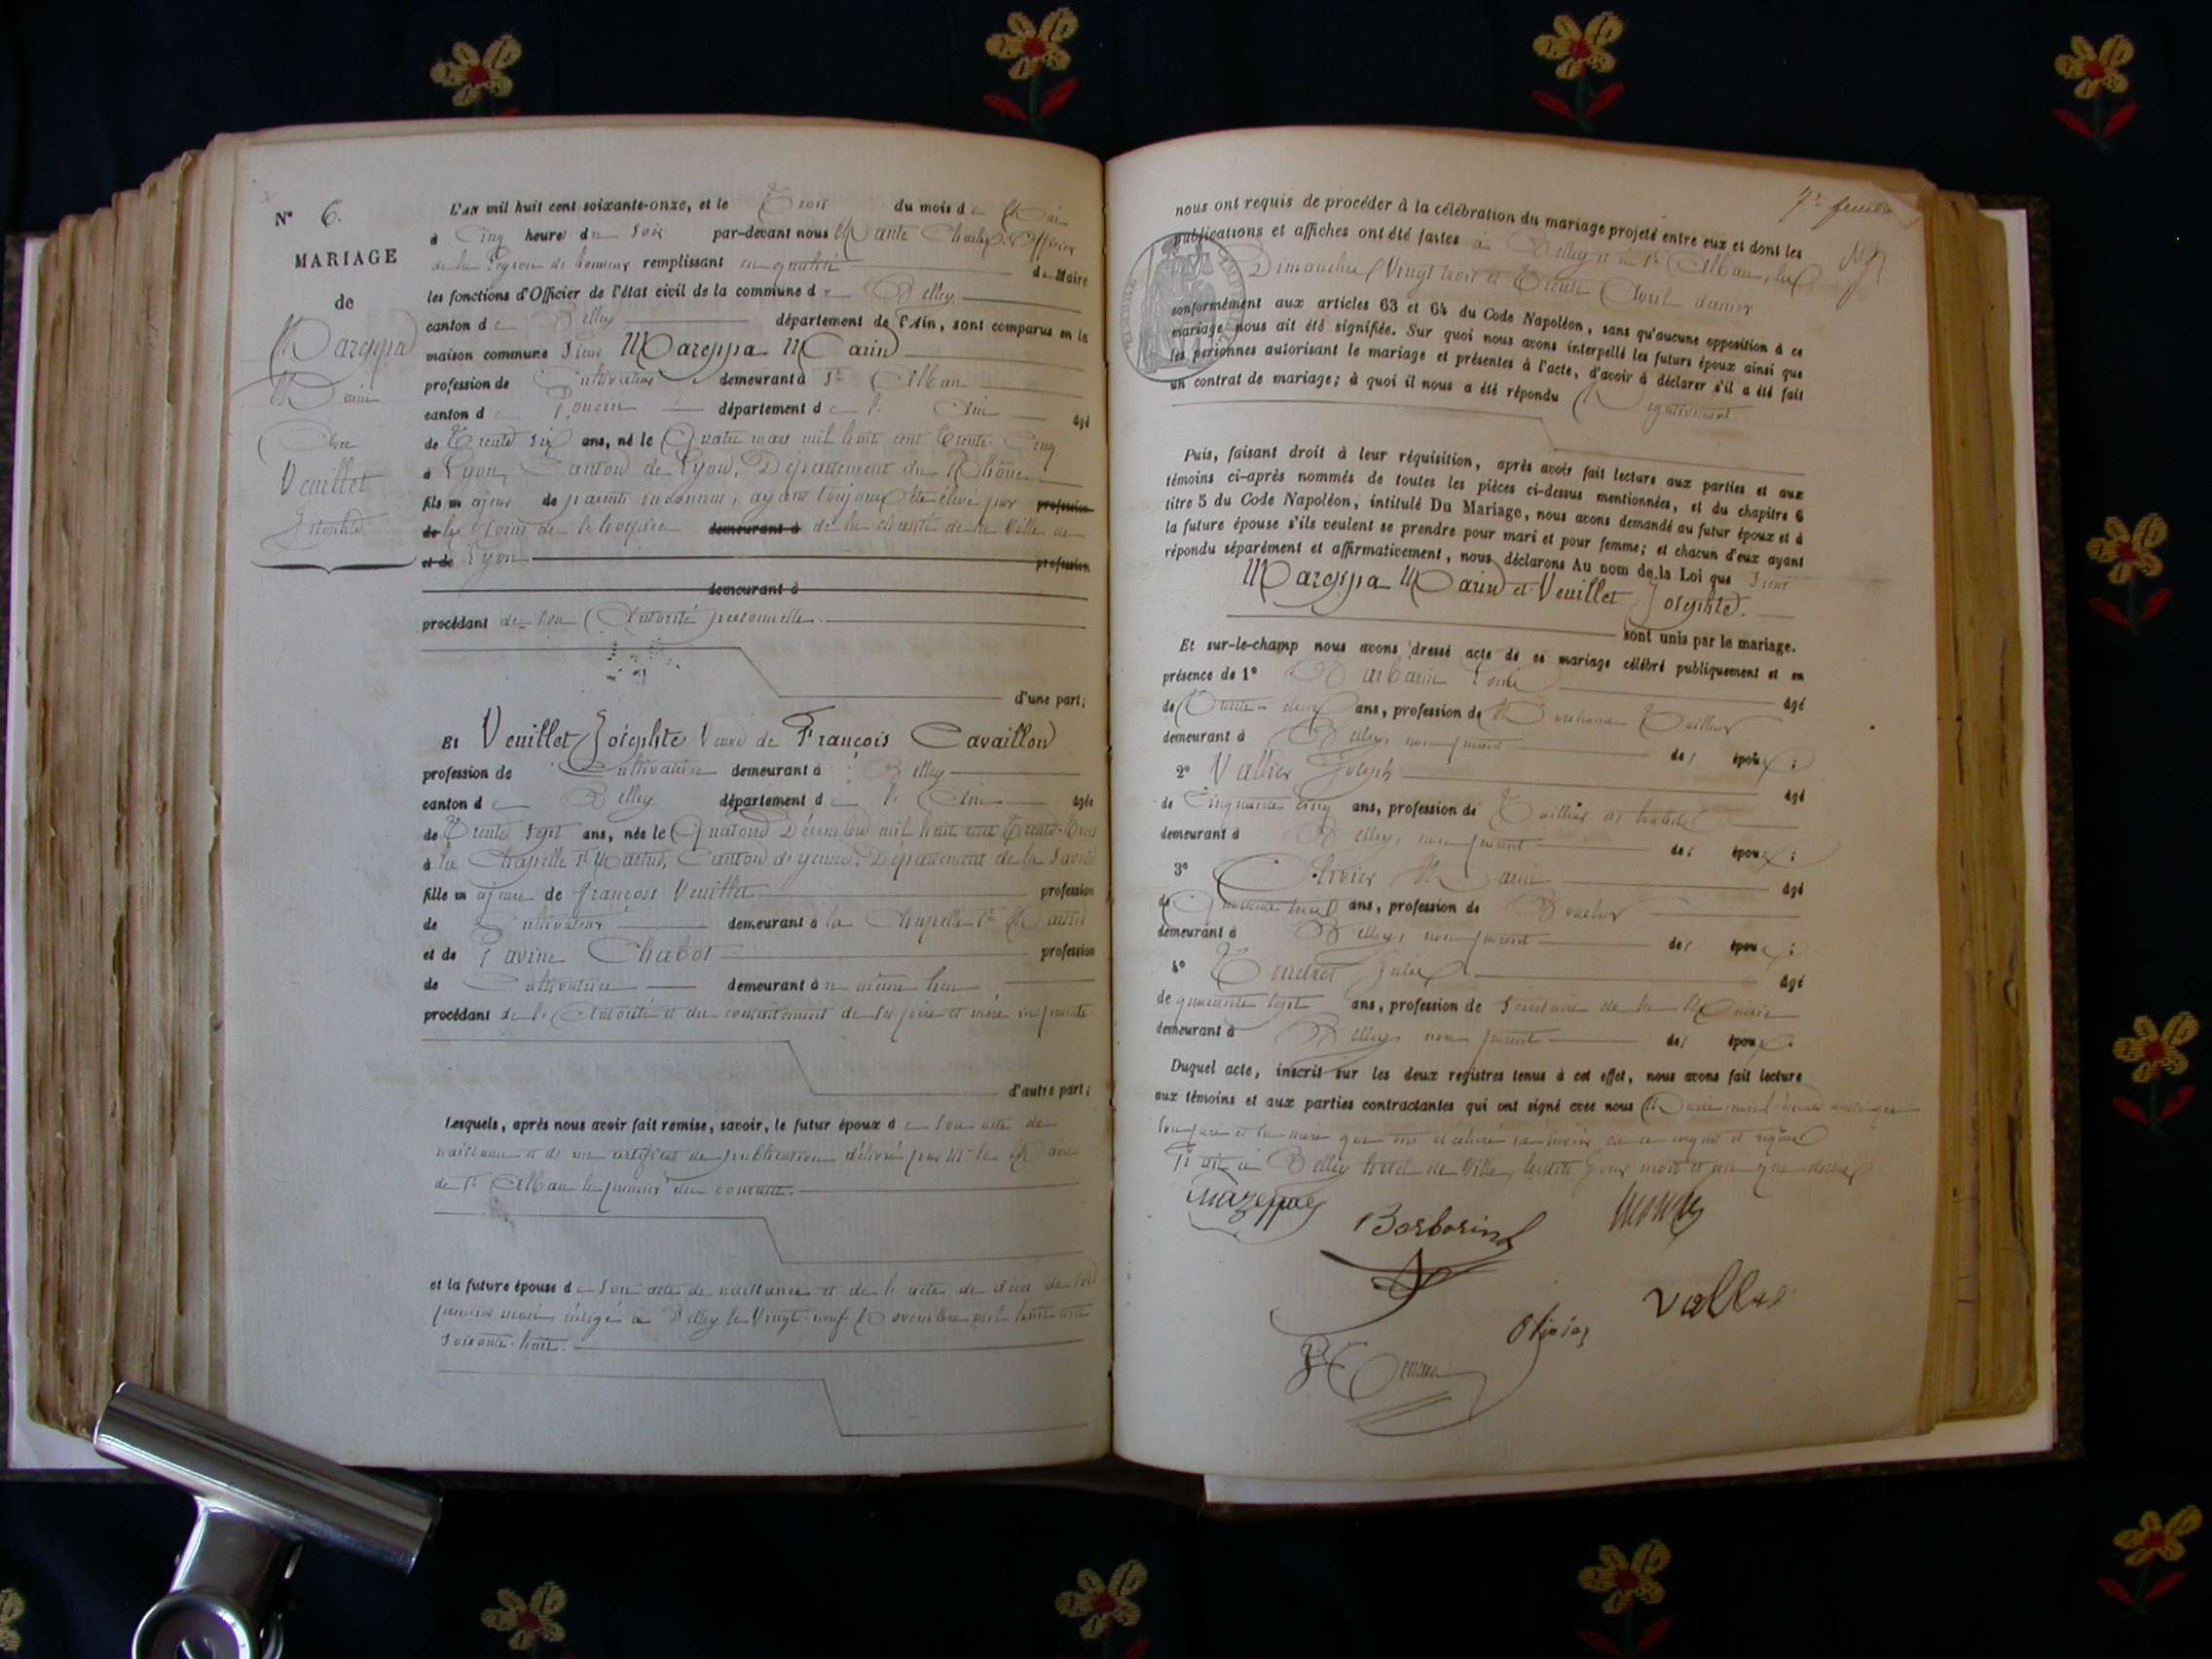 N° 6.
MARIAGE
de
Marin
Avec
Veuillet
Josephte
L'an mil huit cent soixante-onze, et le Trois du mois de Mai
à Cinq heures du Soir par-devant nous Charles, Officier
de la Légion de honneur remplissant en qualité de Maire
les fonctions d'Officier de l'état civil de la commune de Belley
canton de Belley département de l'Ain, sont comparus en la
maison commune Sieur Marin
profession de Cultivateur demeurant à St Alban
canton de Poncin département de l' Ain âgé
de Trente Six ans, né le Quatre mars mil huit cent Trente-Cinq
à Lyon, Canton de Lyon, Département du Rhône
fils majeur de parents inconnus, ayant toujours été élevé par profession
de les Soins de l'hospice demeurant à de la charité de la Ville de
et de Lyon profession
demeurant à
procédant de son Autorité personnelle.
d'une part;
Et Veuillet Josephte Veuve de François Cavaillon
profession de Cultivatrice demeurant à Belley
canton de Belley département de l' Ain âgée
de Trente Sept ans, née le Quatorze Décembre mil huit cent Trente-Trois
à la Chapelle St Martin, Canton d'Yenne, Département de la Savoie
fille majeure de François Veuillet profession
de Cultivateur demeurant à la Chapelle St Martin
et de Pavine Chabot profession
de Cultivatrice demeurant à même lieu
procédant de l'Autorité et du consentement de ses père et mère
d'autre part;
Lesquels, après nous avoir fait remise, savoir, le futur époux de son acte de
naissance et d'un certificat de publication délivré par Mr le Maire
de St Alban le premier du courant.
et la future épouse de son acte de naissance et de l'acte de décès de son
premier mari, rédigé à Belley le Vingt-neuf Novembre mil huit cent
soixante-huit.
nous ont requis de procéder à la célébration du mariage projeté entre eux et dont les
publications et affiches ont été faites à Belley et à St Alban, les
Dimanches Vingt trois et Trente Avril dernier
conformément aux articles 63 et 64 du Code Napoléon, sans qu'aucune opposition à ce
mariage nous ait été signifiée. Sur quoi nous avons interpellé les futurs époux ainsi que
les personnes autorisant le mariage et présentes à l'acte, d'avoir à déclarer s'il a été fait
un contrat de mariage; à quoi il nous a été répondu Négativement
Puis, faisant droit à leur réquisition, après avoir fait lecture aux parties et aux
témoins ci-après nommés de toutes les pièces ci-dessus mentionnées, et du chapitre 6
titre 5 du Code Napoléon, intitulé Du Mariage, nous avons demandé au futur époux et à
la future épouse s'ils veulent se prendre pour mari et pour femme; et chacun d'eux ayant
répondu séparément et affirmativement, nous déclarons Au nom de la Loi que Sieur
Marin et Veuillet Josephte.
sont unis par le mariage.
Et sur-le-champ nous avons dressé acte de ce mariage célébré publiquement et en
présence de 1° Barbarin âgé
de Trente-deux ans, profession de Marchand Tailleur
demeurant à Belley, non parent des époux;
2° Vallier Joseph âgé
de Cinquante cinq ans, profession de Tailleur
demeurant à Belley, non parent des époux;
3° Olivier Marin âgé
de ans, profession de Boucher
demeurant à Belley, non parent des époux;
4° Jules âgé
de quarante sept ans, profession de Secrétaire de la Mairie
demeurant à Belley, non parent des époux.
Duquel acte, inscrit sur les deux registres tenus à cet effet, nous avons fait lecture
aux témoins et aux parties contractantes qui ont signé avec nous
Fait à Belley hotel de Ville, lesdits Jour mois et an que dessus
Barborin
Olivier